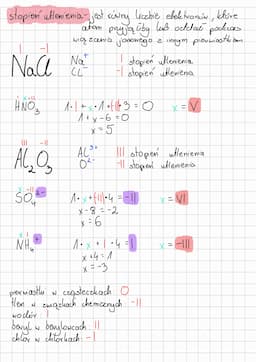 stopień utlenienia - jest równy liczbie elektronów, które
atom przyjąłby lub oddał podczas
wiązania jonowego z innym pierwiastkiem
I -I
NaCl Na⁺ I stopień utlenienia
Cl⁻ -I stopień utlenienia
I x -II
HNO₃ 1·I + x·1 + (-II)·3 = 0 x = V
1 + x - 6 = 0
x = 5
III -II
Al₂O₃ Al³⁺ III stopień utlenienia
O²⁻ -II stopień utlenienia
x -II
SO₄²⁻ 1·x + (-II)·4 = -II x = VI
x - 8 = -2
x = 6
x I
NH₄⁺ 1·x + I·4 = I x = -III
x + 4 = 1
x = -3
pierwiastki w cząsteczkach 0
tlen w związkach chemicznych -II
wodór I
beryl w berylowcach II
chlor w chlorkach -I